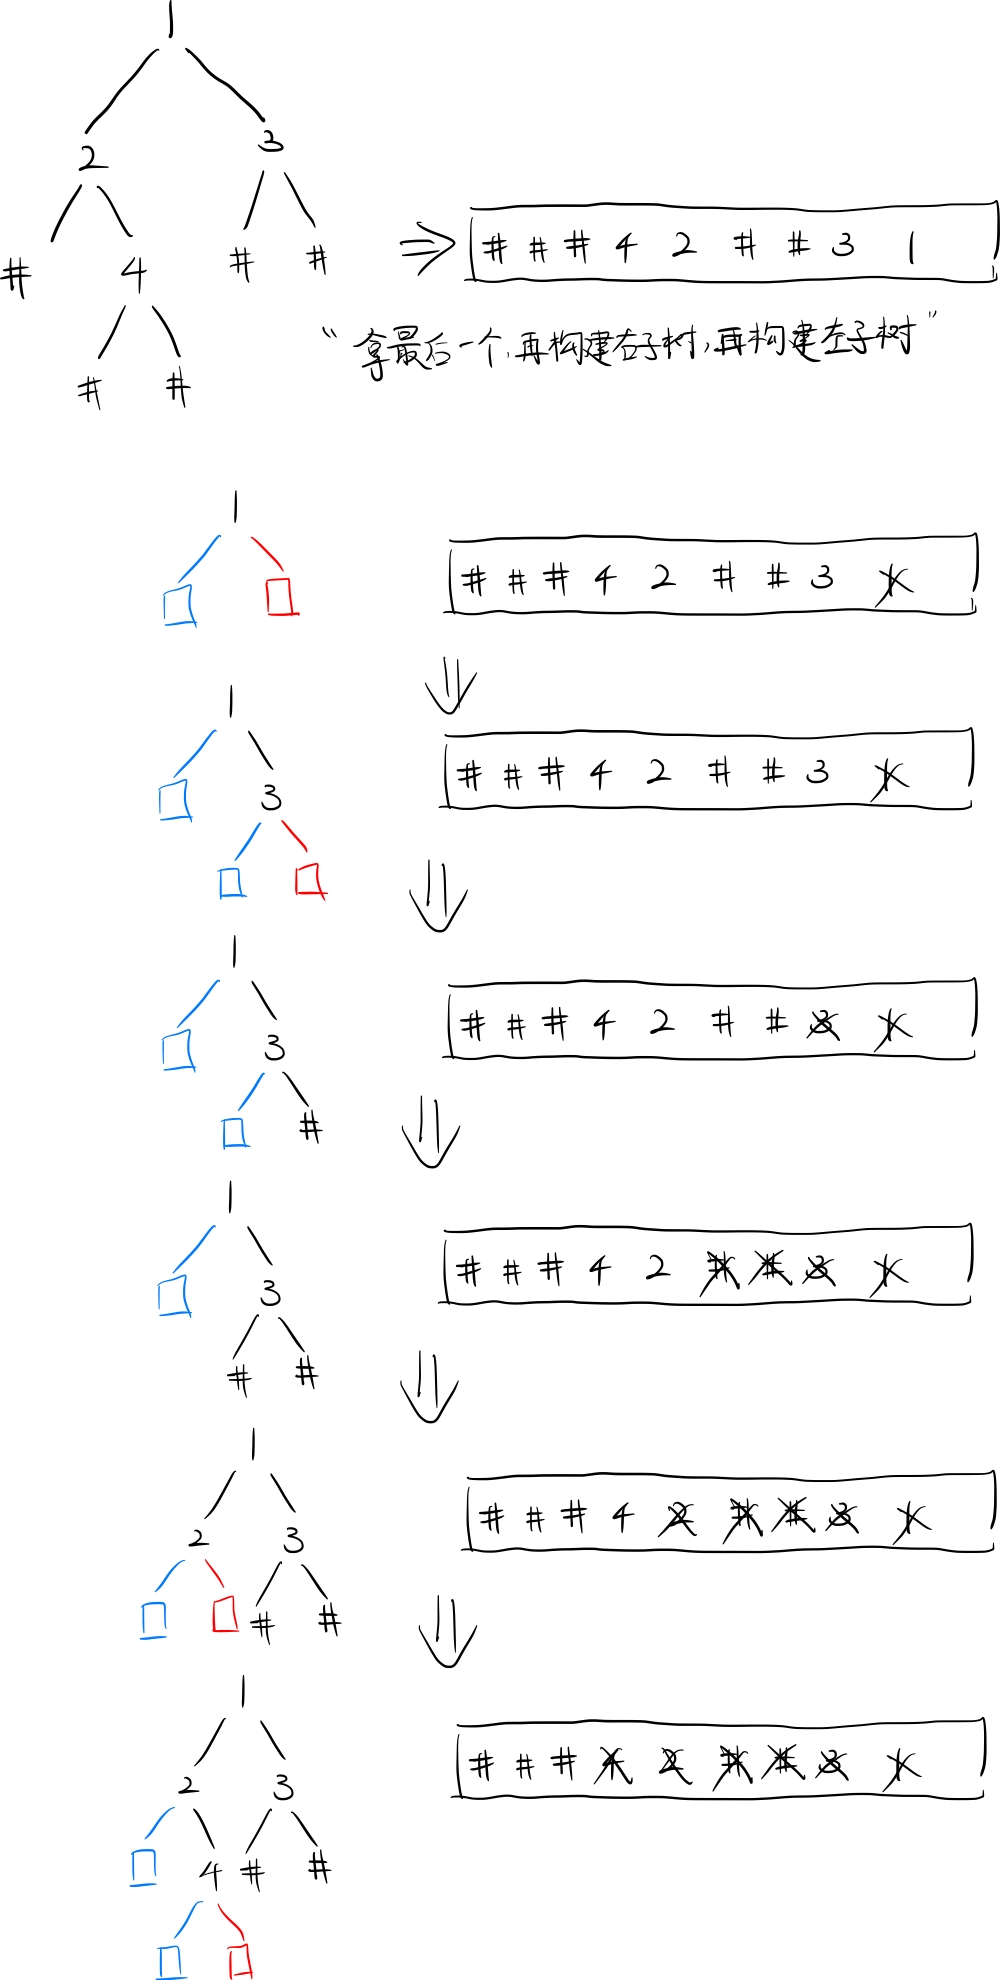 1
2 3
# 4 # #
# #
# # # 4 2 # # 3 1
“拿最后一个,再构建右子树,再构建左子树”
1
# # # 4 2 # # 3 1
1
3
# # # 4 2 # # 3 1
1
3
#
# # # 4 2 # # 3 1
1
3
# #
# # # 4 2 # # 3 1
1
2 3
# #
# # # 4 2 # # 3 1
1
2 3
4 # #
# # # 4 2 # # 3 1